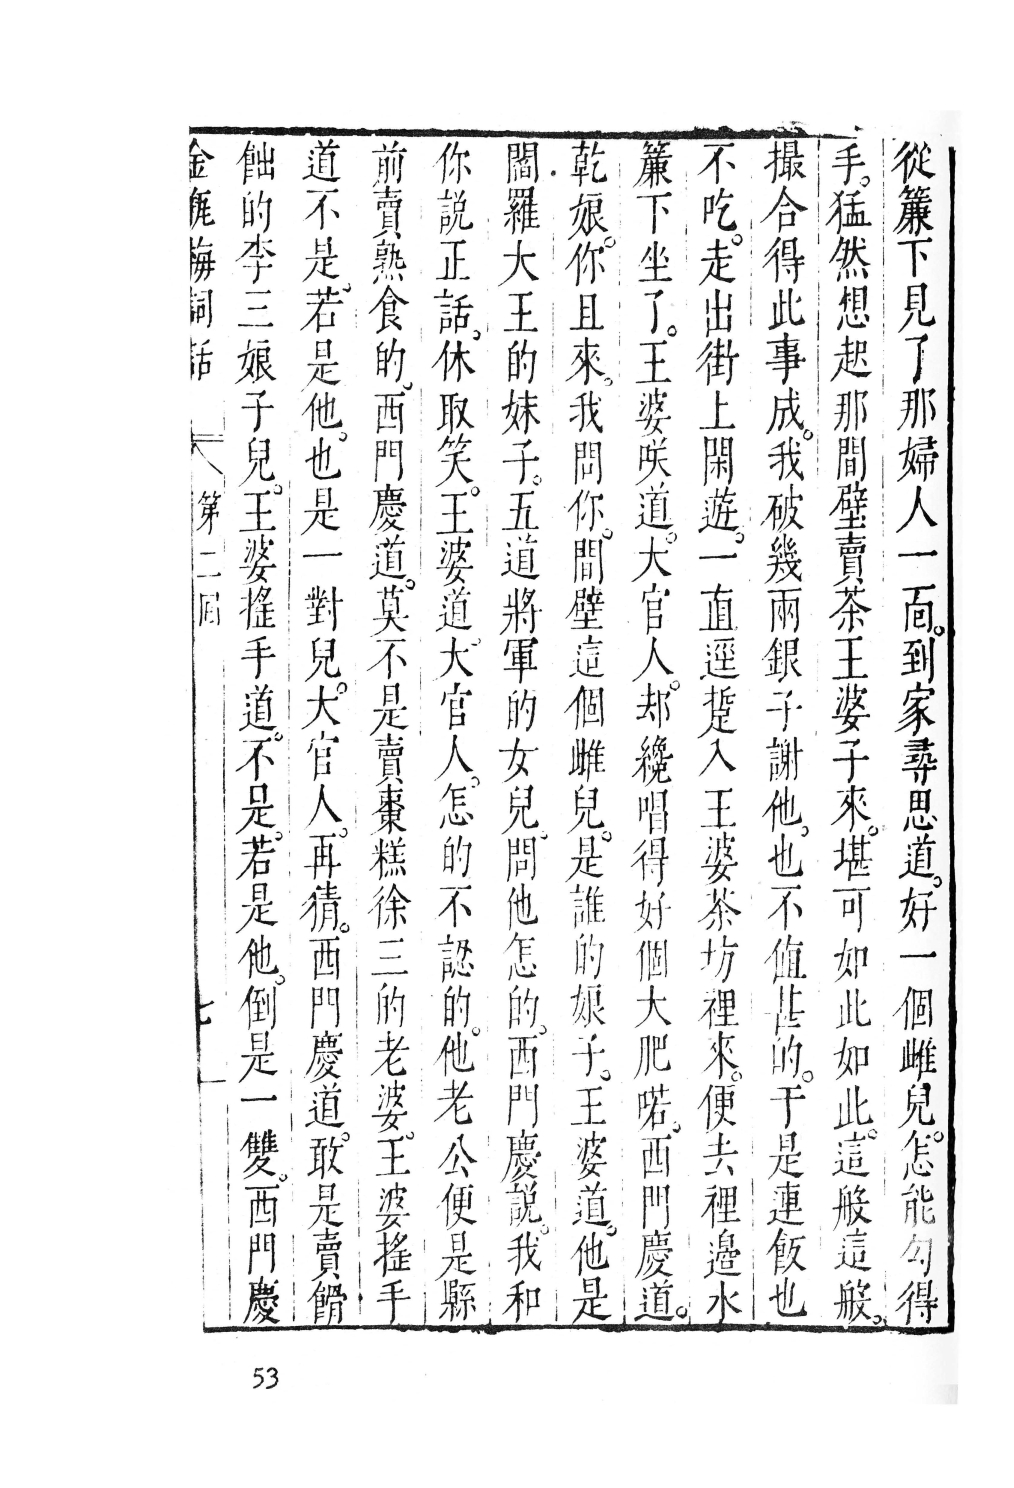 從簾下見了那婦人一面。到家尋思道。好一個雌兒。怎能勾得
手。猛然想起那間壁賣茶王婆子來。堪可如此如此。這般這般。
撮合得此事成。我破幾兩銀子謝他。也不値甚的。于是連飯也
不吃。走出街上閑遊。一直逕踅入王婆茶坊裡來。便去裡邊水
簾下坐了。王婆咲道。大官人。却纔唱得好個大肥喏。西門慶道。
乾娘。你且來。我問你。間壁這個雌兒。是誰的娘子。王婆道。他是
閻羅大王的妹子。五道將軍的女兒。問他怎的。西門慶說。我和
你說正話。休取笑。王婆道。大官人。怎的不認的。他老公便是縣
前賣熟食的。西門慶道。莫不是賣棗糕徐三的老婆。王婆搖手
道不是。若是他。也是一對兒。大官人。再猜。西門慶道。敢是賣餶
飿的李三娘子兒。王婆搖手道。不是。若是他。倒是一雙。西門慶
金瓶梅詞話 第二回 七
53